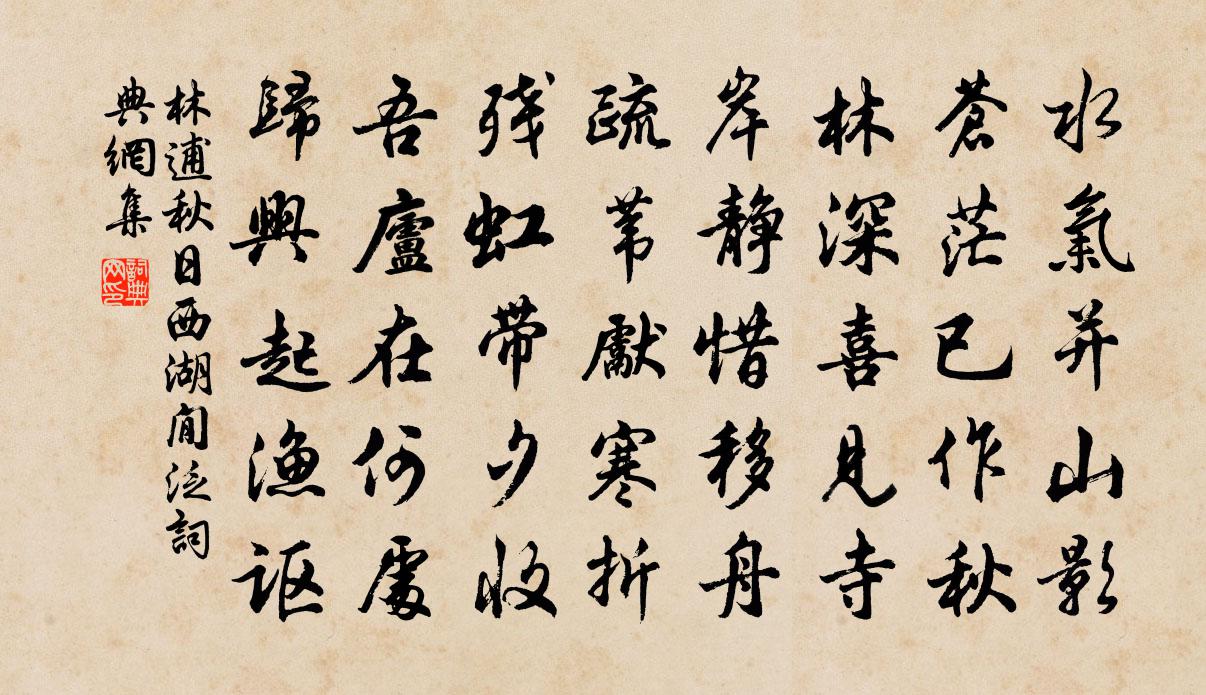 水氣并山影
蒼茫已作秋
林深喜見寺
岸静惜移舟
疏葦獻寒折
残虹带夕收
吾廬在何處
歸興起漁讴
林逋秋日西湖閒泛詞
典網集
詞典
网印